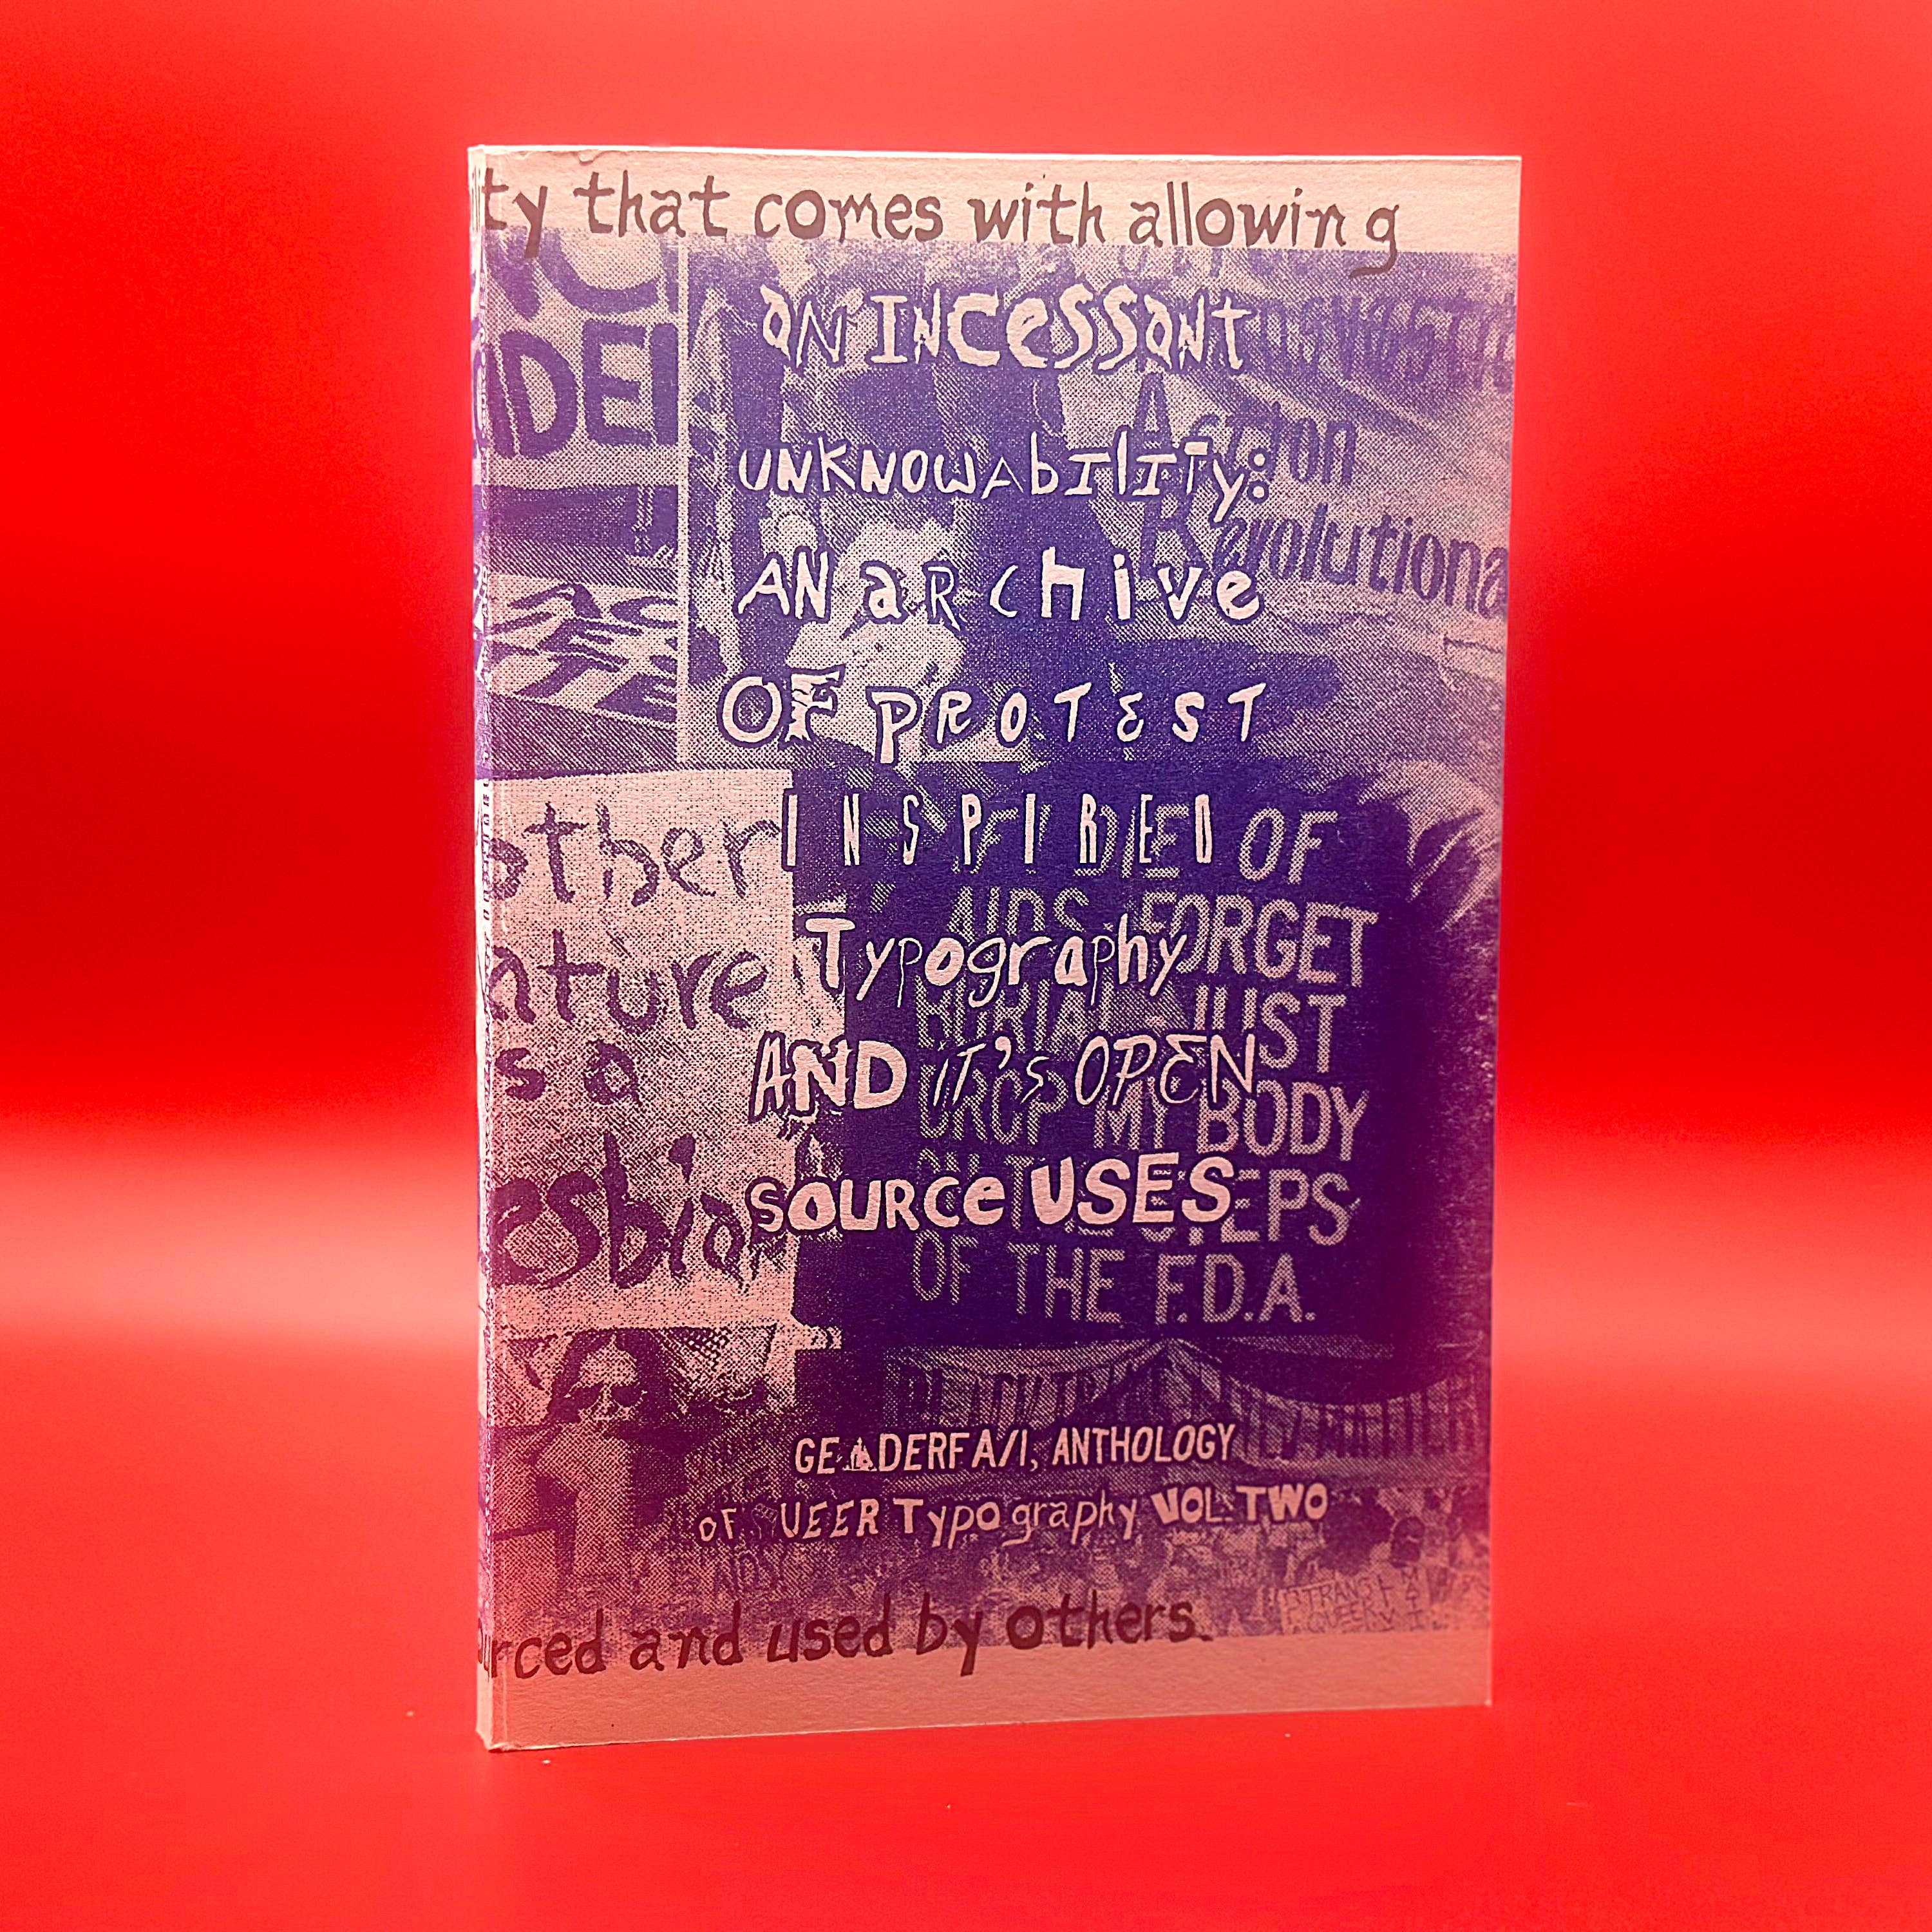 ty that comes with allowing
AN INCESSANT
UNKNOWABILITY:
AN ARCHIVE
OF PROTEST
INSPIRED
Typography
AND IT'S OPEN
SOURCE USES
GENDERFA/I, ANTHOLOGY
OF UEER Typography VOL. TWO
urced and used by others.
IDEI
Action
Revolutiona
other
ature
s a
esbian
OF
AIDS FORGET
BURIAL JUST
DROP MY BODY
STEPS
OF THE F.D.A.
TRANS
QUEER